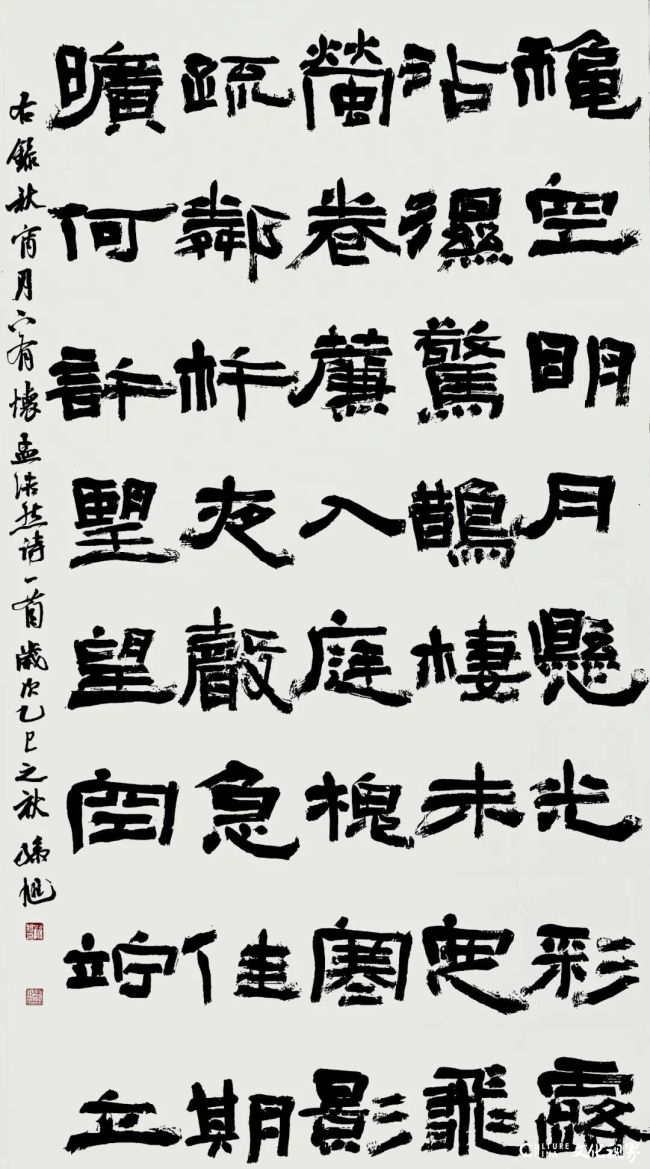 穐空明月懸光彩露
沾濕驚鵲棲未定飛
螢卷簾入庭槐寒影
疏鄰杵夜聲急佳期
曠何許朢望空竚立
右錄秋宵月下有懷孟浩然诗一首歲次乙巳之秋孫旭
CULTURE
文化视界